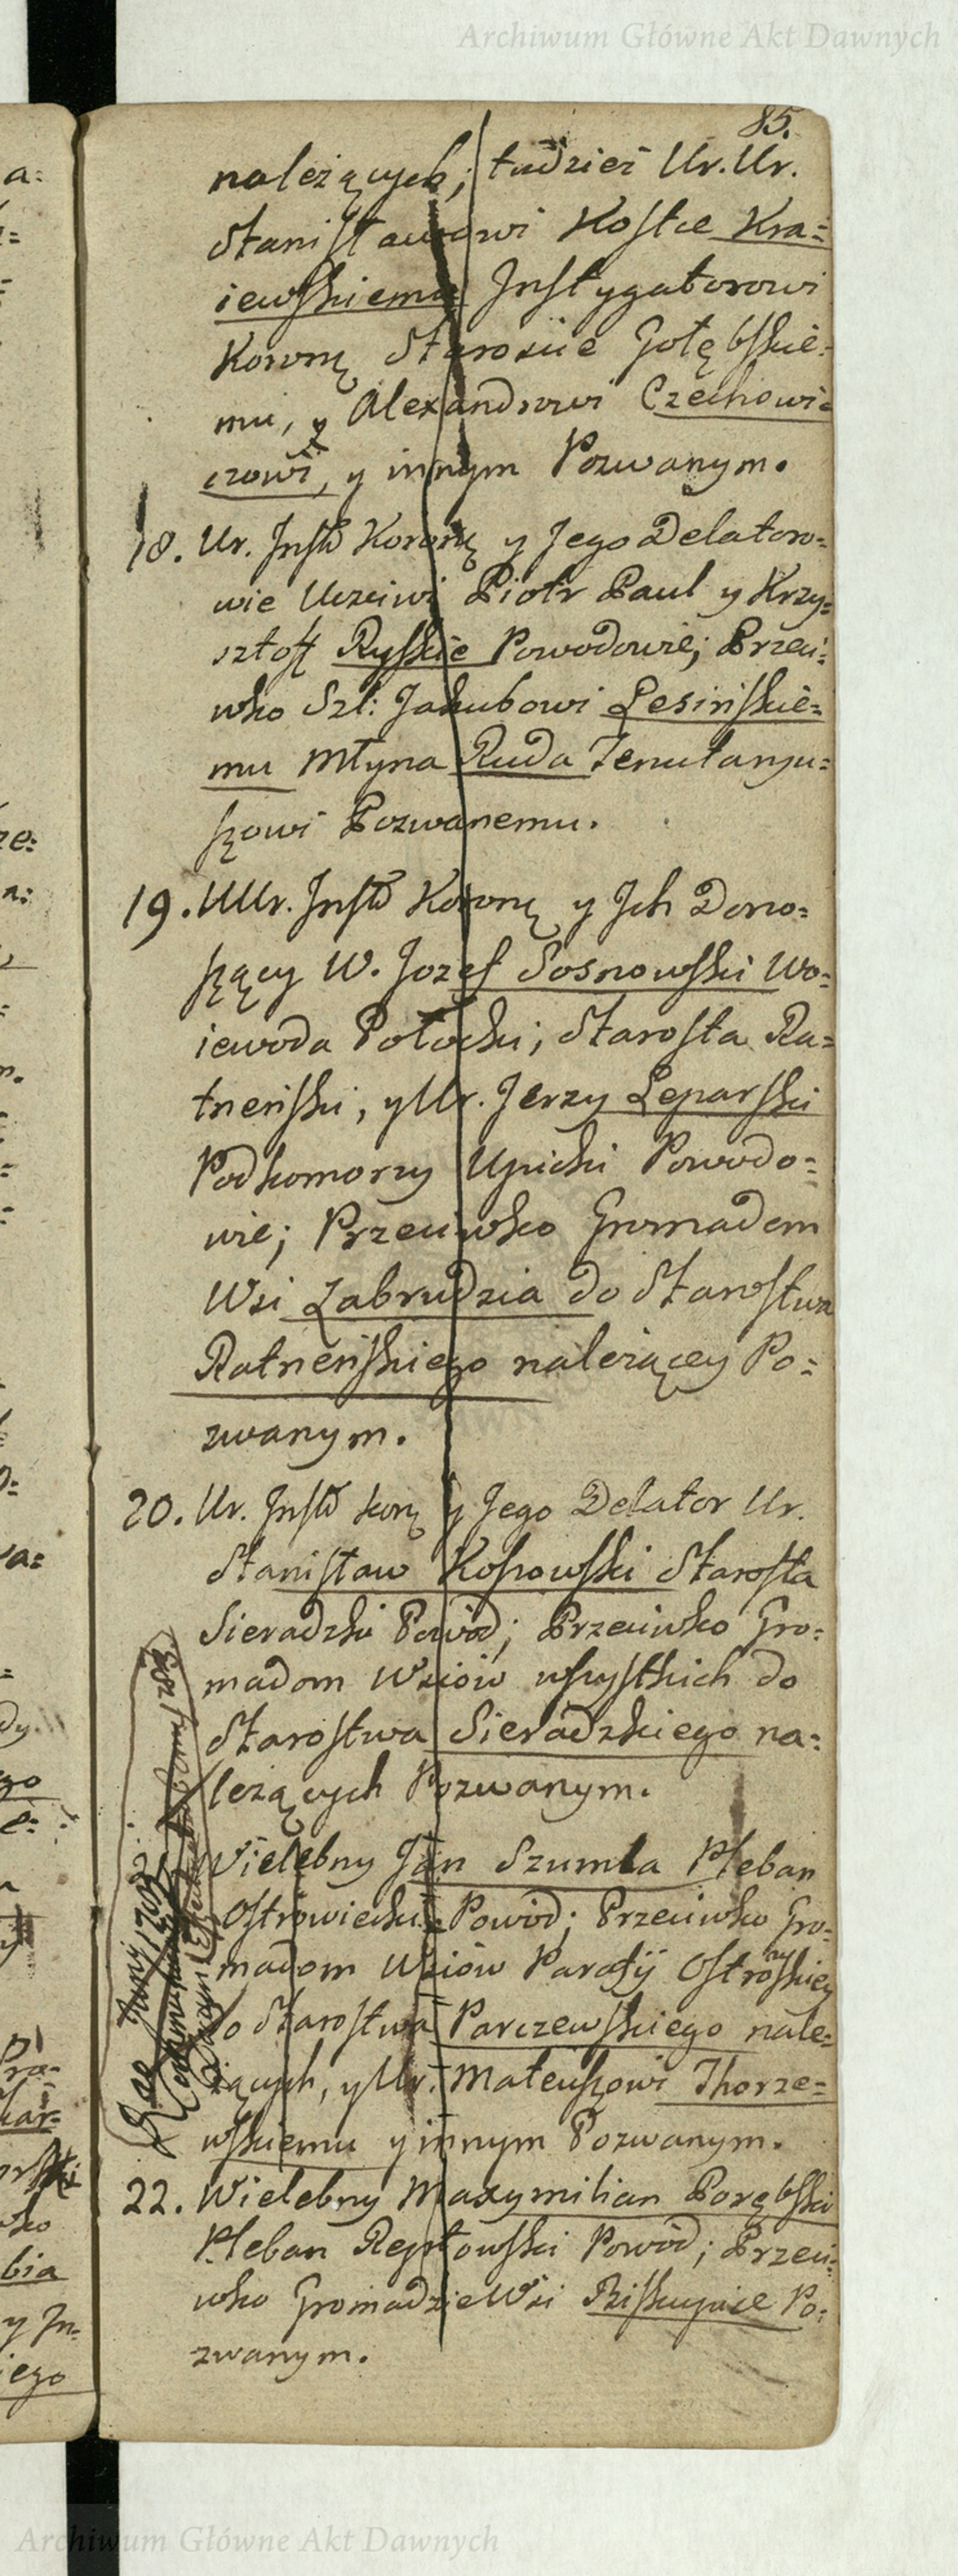 Archiwum Główne Akt Dawnych
85.
należących; tudzież Ur. Ur.
Stanisławowi Kostce Kra=
iewskiemu Instygatorowi
Koronę Starośiie Gołębskie=
mu, y Alexandrowi Czechowi=
czowi, y innym Pozwanym.
18. Ur. Inst̄r Koronę y Jego Delatoro=
wie Uczciwi Piotr Paul y Krzy=
sztoff Ryskie Powodowie; Przeci=
wko Szl: Jakubowi Lesińskie=
mu Młyna Ruda Tenutaryu=
szowi Pozwanemu.
19. UUr. Inst̄r Koronę y Ich Dono=
szący W. Jozef Sosnowski Wo=
iewoda Połocki, Starosta Ra=
tneński, y Ur. Jerzy Leparski
Podkomorzy Upicki Powodo=
wie; Przeciwko Gromadom
Wsi Zabrudzia do Starostwa
Ratneńskiego należącey Po=
zwanym.
20. Ur. Inst̄r korę y Jego Delator Ur.
Stanisław Kossowski Starosta
Sieradzki Powód; Przeciwko Gro=
madom Wsiów wszystkich do
Starostwa Sieradzkiego na=
leżących Pozwanym.
Wielebny Jan Szumla Pleban
Ostrowiecki Powód; Przeciwko Gro=
madom Wsiów Parafij Ostrowskiey
do Starostwa Parczewskiego nale=
żących, y Ur. Mateuszowi Thorze=
wskiemu y innym Pozwanym.
22. Wielebny Maxymilian Porębski
Pleban Reptowski Powód; Przeci=
wko Gromadzie Wsi Biskupice Po=
zwanym.
Archiwum Główne Akt Dawnych